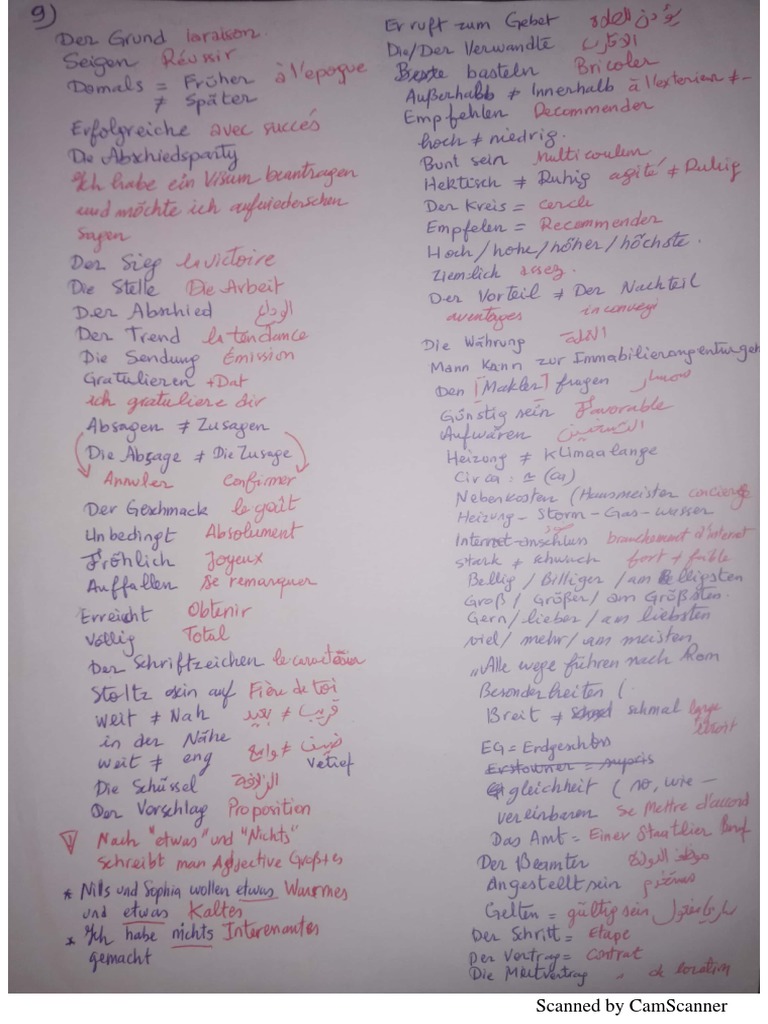 9)
Der Grund la raison.
Seigen Réussir
Damals = Früher à l'epogue
≠ Später
Erfolgreiche avec succés
Die Abschiedsparty
Ich habe ein Visum beantragen
und möchte ich aufwiedersehen
sagen
Der Sieg la victoire
Die Stelle Die Arbeit
Der Abschied الوداع
Der Trend la tendance
Die Sendung Émission
Gratulieren +Dat
ich gratuliere dir
Absagen ≠ Zusagen
Die Absage ≠ Die Zusage
Annuler Confirmer
Der Geschmack le goût
Unbedingt Absolument
Fröhlich Joyeux
Auffallen Se remarquer
Erreicht Obtenir
Völlig Total
Der Schriftzeichen le caractère
Stoltz sein auf Fière de toi
weit ≠ Nah قريب ≠ بعيد
in der Nähe
weit ≠ eng ضيق ≠ واسع
Die Schüssel
Der Vorschlag Proposition
Nach "etwas" und "Nichts"
schreibt man Adjective Großes
* Nils und Sophia wollen etwas Warmes
und etwas Kaltes
* Ich habe nichts Interenantes
gemacht
Er ruft zum Gebet يؤذن للصلاة
Die/Der Verwandte الأقارب
basteln Bricoler
Außerhalb ≠ Innerhalb à l'exterieur ≠ -
Empfehlen Recommender
hoch ≠ niedrig.
Bunt sein Multicouleur
Hektisch ≠ Ruhig agité ≠ Ruhig
Der Kreis = cercle
Empfelen = Recommender
Hoch / hohe / höher / höchste.
Ziemlich assez.
Der Vorteil ≠ Der Nachteil
aventages inconvegi
Die Währung العملة
Mann Kann zur Immobilierangentur gehen
Den [Makler] fragen سمسار
Günstig sein Favorable
Aufwären التسخين
Heizung ≠ Klimaalange
Circa : ≃ (ca)
Nebenkosten (Hausmeister concierge
Heizung - Storm - Gas - wasser
Internet-anschluss branchement d'internet
stark ≠ schwach fort ≠ faible
Bellig / Billiger / am Belligsten
Groß / Größer / am Größsten.
Gern / lieber / am liebsten
viel / mehr / am meisten
„Alle wege führen nach Rom
Besonderheiten (
Breit ≠ schmal large
étroit
EG = Erdgeschoss
gleichheit ( so, wie —
vereinbaren Se Mettre d'accord
Das Amt = Einer Staatlier
Der Beamter موظف الدولة
Angestellt sein مستخدم
Gelten = gültig sein ساري المفعول
Der Schritt = Etape
Der Vertrag = contrat
Die Mietvertrag " de location
Scanned by CamScanner